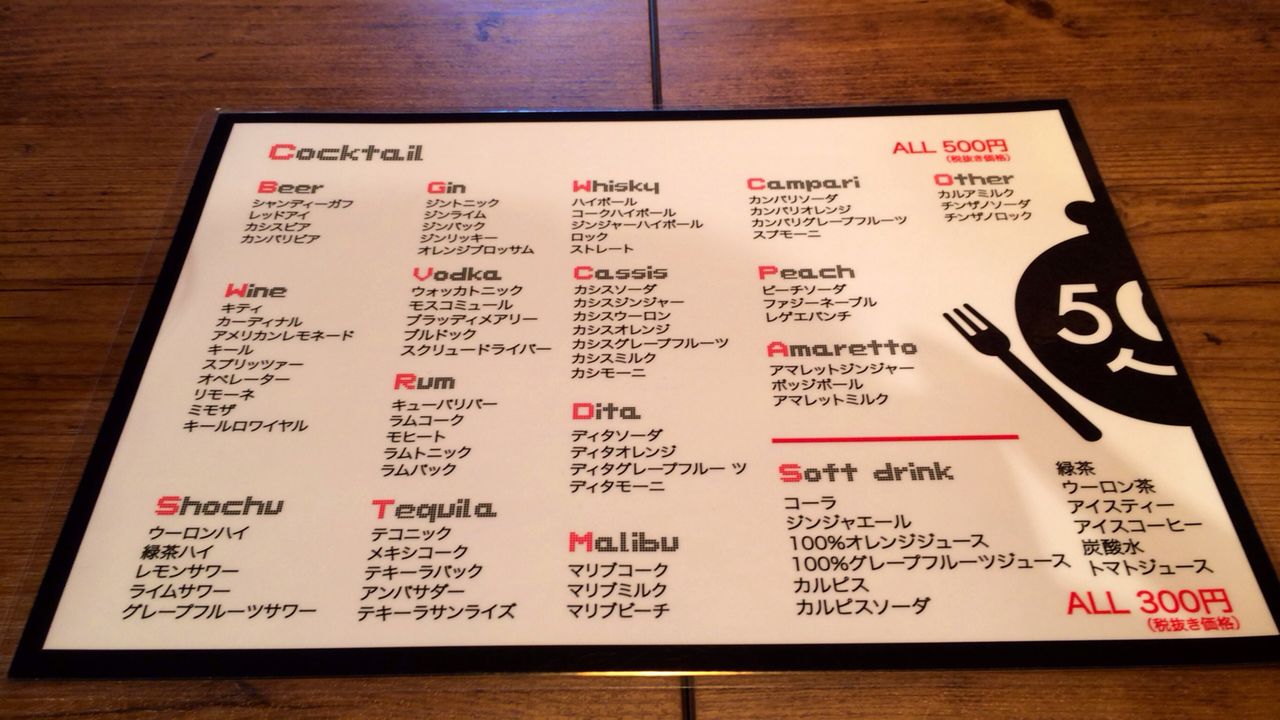 Cocktail
ALL 500円
(税抜き価格)
Beer
シャンディーガフ
レッドアイ
カシスビア
カンパリビア
Gin
ジントニック
ジンライム
ジンバック
ジンリッキー
オレンジブロッサム
Whisky
ハイボール
コークハイボール
ジンジャーハイボール
ロック
ストレート
Campari
カンパリソーダ
カンパリオレンジ
カンパリグレープフルーツ
スプモーニ
Other
カルアミルク
チンザノソーダ
チンザノロック
Wine
キティ
カーディナル
アメリカンレモネード
キール
スプリッツァー
オペレーター
リモーネ
ミモザ
キールロワイヤル
Vodka
ウォッカトニック
モスコミュール
ブラッディメアリー
ブルドック
スクリュードライバー
Cassis
カシスソーダ
カシスジンジャー
カシスウーロン
カシスオレンジ
カシスグレープフルーツ
カシスミルク
カシモーニ
Peach
ピーチソーダ
ファジーネーブル
レゲエパンチ
Rum
キューバリバー
ラムコーク
モヒート
ラムトニック
ラムバック
Dita
ディタソーダ
ディタオレンジ
ディタグレープフルー ツ
ディタモーニ
Amaretto
アマレットジンジャー
ボッジボール
アマレットミルク
Shochu
ウーロンハイ
緑茶ハイ
レモンサワー
ライムサワー
グレープフルーツサワー
Tequila
テコニック
メキシコーク
テキーラバック
アンバサダー
テキーラサンライズ
Malibu
マリブコーク
マリブミルク
マリブピーチ
Soft drink
コーラ
ジンジャエール
100%オレンジジュース
100%グレープフルーツジュース
カルピス
カルピスソーダ
緑茶
ウーロン茶
アイスティー
アイスコーヒー
炭酸水
トマトジュース
ALL 300円
(税抜き価格)
50